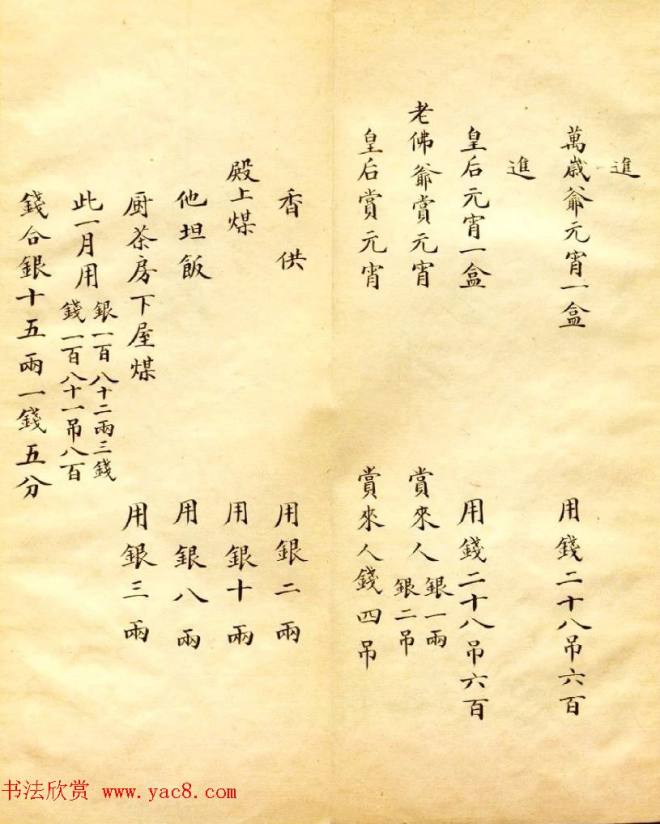 進
萬歲爺元宵一盒 用錢二十八吊六百
進
皇后元宵一盒 用錢二十八吊六百
老佛爺賞元宵 賞來人 銀一兩 銀二吊
皇后賞元宵 賞來人錢四吊
香供 用銀二兩
殿上煤 用銀十兩
他坦飯 用銀八兩
厨茶房下屋煤 用銀三兩
此一月用 銀一百八十二兩三錢 錢一百八十一吊八百
錢合銀十五兩一錢五分
书法欣赏 www.yac8.com